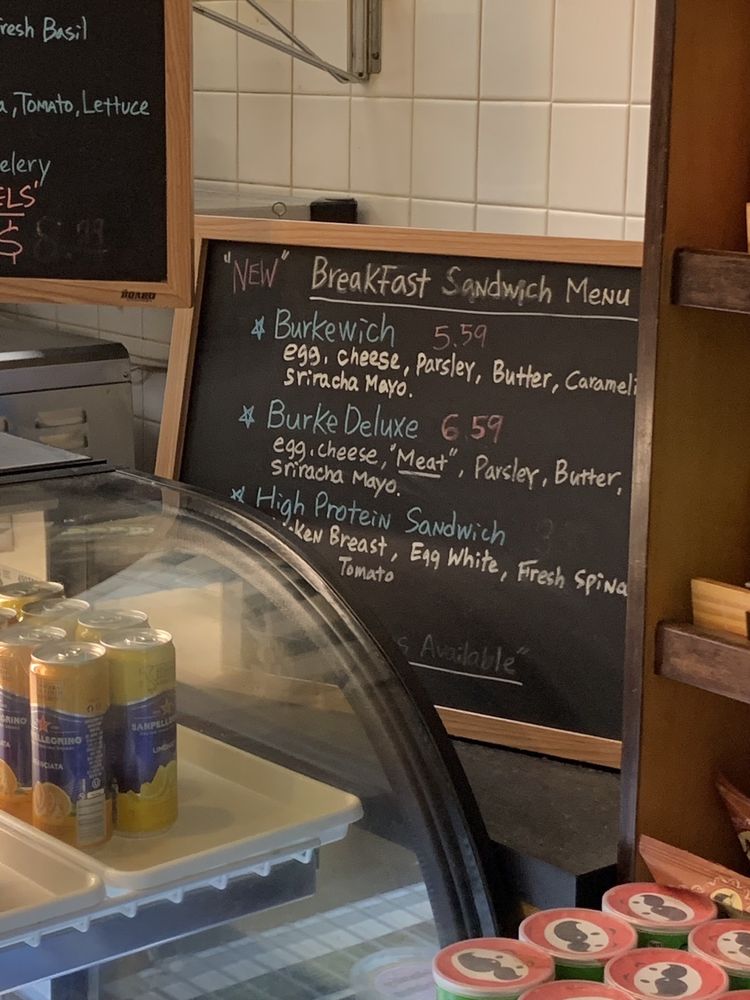 resh Basil
a, Tomato, Lettuce
elery
ELS'
$
BOARD
"NEW" Breakfast Sandwich Menu
Burkewich 5.59
egg, cheese, Parsley, Butter, Carameli
Sriracha Mayo.
Burke Deluxe 6.59
egg, cheese, "Meat", Parsley, Butter,
Sriracha Mayo.
High Protein Sandwich
ken Breast, Egg White, Fresh Spina
Tomato
s Available"
SANPELL
LIMON
LLEGRINO
NCIATA
GRINO